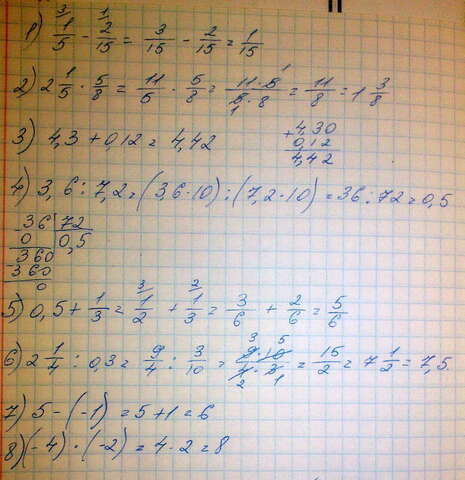 1) ³1/5 - ¹2/15 = 3/15 - 2/15 = 1/15
2) 2 1/5 · 5/8 = 11/5 · 5/8 = 11·5¹/5₁·8 = 11/8 = 1 3/8
3) 4,3 + 0,12 = 4,42
+4,30
0,12
4,42
4) 3,6 : 7,2 = (3,6·10) : (7,2·10) = 36 : 72 = 0,5
36 | 72
0 | 0,5
360
360
0
5) 0,5 + 1/3 = ³1/2 + ²1/3 = 3/6 + 2/6 = 5/6
6) 2 1/4 : 0,3 = 9/4 : 3/10 = 9³·10⁵/4₂·3₁ = 15/2 = 7 1/2 = 7,5.
7) 5 - (-1) = 5 + 1 = 6
8) (-4) · (-2) = 4 · 2 = 8